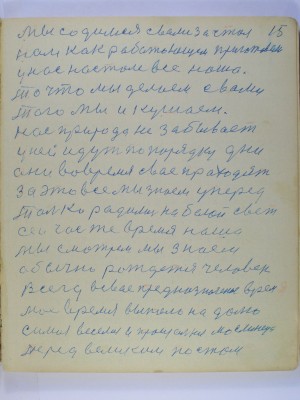 15
Мы садимся с вами за стол
нам как работающем приготовили
у нас на столе все наша.
То что мы делаем с вами
того мы и кушаем.
Нас природа не забывает
у ней идут по порядку дни
они вовремя свае праходят
За это все мы знаем уперед
Только радилис на белой свет
сейчас те время наша
мы смотрим мы знаем
обычно рождается человек
Всегда в свае предназначеное время
мое время выпало на долю
самая веселая прощальная масленица
перед великим постом